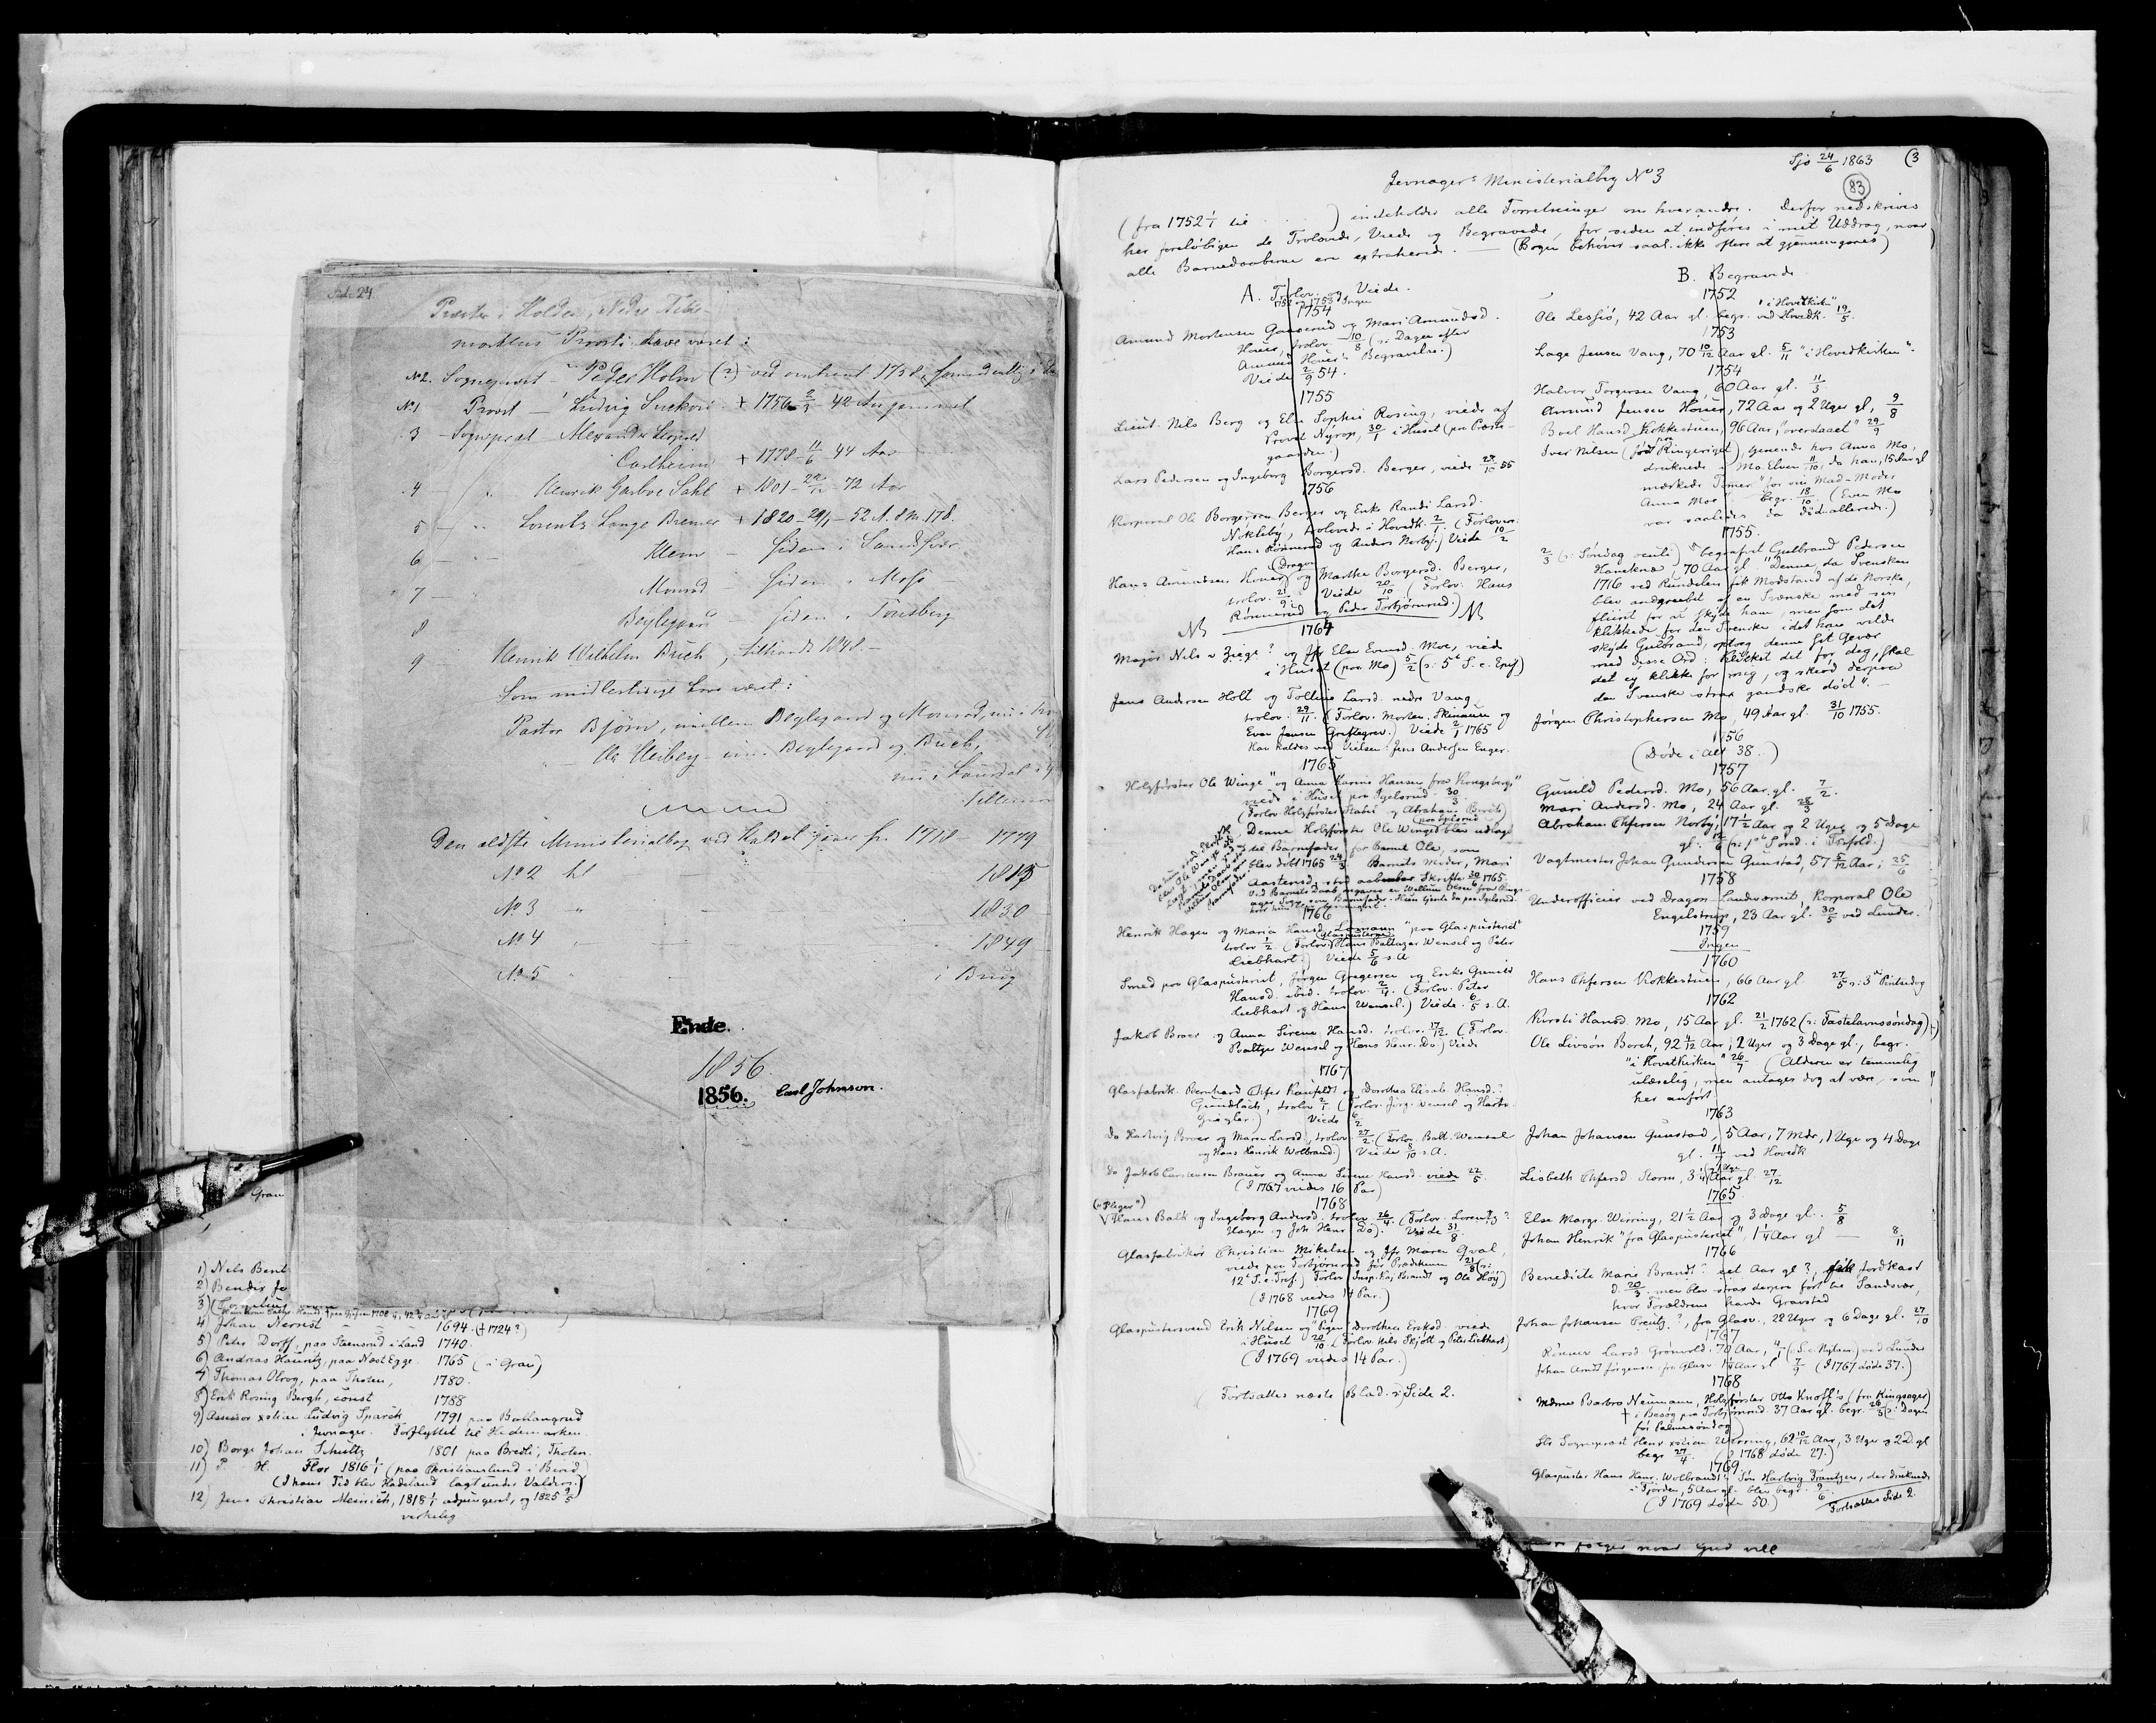 Præster i Holden, Nedre Tele-
markens Provsti have været:
No 2. Sognepræst - Peder Holm (?) ved omtrent 1758,
No 1 Provst - Ludvig + 1756 42 Aar gammel
3 - Sognepræst - Alexander Leopold
Carlheim + 1778 11/6 44 Aar
4 " Henrik Garboe Sahl + 1801 - 72 Aar
5 - " Lorentz Lange Bremer + 1820 - 52 A. 8 M. 17 D.
6 - " Klem - siden i Sandsvær
7 - Monrad - siden i Moss
8 Beylegaard - siden i Tønsberg
9 - Henrik Wilhelm Buch, tiltraadt 1848. -
Som midlertidige have været:
Pastor Bjørn, imellem Beylegaard og Monrad, nu i
- Ole Heiberg - im. Beylegaard og Buch,
nu i Laurdal i
Den ældste Ministerialbog ved Kaldet gaaer fr. 1718 - 1779
No 2 til - 1815
No 3 " - 1830
No 4 " - 1849
No 5 " i Brug
Ende.
1856.
1856. Carl Johnson.
Gran
1) Nels Bent
2) Bender Jo
4) Johan Nernst " " 1694 († 1724?)
5) Peter Dorff, paa Steensrud i Land 1740.
6) Andreas Hauritz, paa Næst Egge. 1765 (i Gran)
7) Thomas Olrog, paa Thoten, 1780.
8) Erik Rosing Bergh, const 1788
9) Assessor xstian Ludvig Sparck 1791 paa Bollangrud
i Jevnager. Forflyttet til Hedemarken.
10) Børge Johan Schultz 1801 paa Bredli, Thoten.
11) P. H. Flor 1816 1/1 (paa Christianslund i Birid)
(I hans Tid blev Hadeland lagt under Valders.)
12) Jens Christian Meinich, 1818 1/1 adjungeret, og 1825 9/5
virkelig
Sjo 24/6 1863 (3
83
Jevnagers Ministerialbog No 3
(fra 1752 1/1 til ) indeholder alle Forretninger om hverandre. Derfor nedskrives
her foreløbigen de Trolovede, Viede og Begravede, for siden at indføres i mit Uddrag, naar
alle Barnedaabene ere extraherede. - (Bogen behøver saal. ikke oftere at gjennemgaaes)
A. Trolov. og Viede.
1752 og 1753 Ingen
1754
Amund Mortensen Gaaserud og Mari Amundsd.
Houer, trolov. 10/8 (: Dagen efter
Amund Houer's Begravelse.)
Viede 2/9 54.
1755
Lieut. Nils Berg og Else Sophie Rosing, viede af
Provst Nyrop, 30/1 i Huset (paa Præste-
gaarden.)
Lars Pedersen og Ingeborg Borgersd. Berger, viede 55
1756
Korporal Ole Borgersen Berger og Enke Randi Larsd.
Nikleby, trolovede i Hovedk. 2/1. (Forlovere
Hans Rønnerud og Anders Norby.) Viede 10/2
(Dragon
Hans Amundsen Houer) og Marthe Borgersd. Berger,
trolov. 21/9. Viede 20/10. (Forlov. Hans
Rønnerud og Peder Torbjørnrud.)
NB NB
1764
Major Nils v Ziege? og Jfr Else Evensd. Moe, viede
i Huset (paa Mo) 5/2 (: 5te S. e. Epif)
Jens Andersen Holt og Tolline Larsd. nedre Vang
trolov. 29/11. (Forlov. Morten Skinnuen og
Even Jensen Greftegrev.) Viede 2/1 1765
Han kaldes ved Vielsen: Jens Andersen Enger.
1765
Holzførster Ole Winge "og Anna Karine Hansen fra Kongsberg"
viede i Huset paa Igelsrud 30/3.
(Forlov. Holzførster Stabel og Abraham Berels)
(paa Igelsrud
Denne Holzførster Ole Winge blev udlagt
til Barnefader for Barnet Ole, som
blev døbt 1765 24/3. Barnets Moder, Mari
Aastensd. stod aabenbar Skrifte 30/6 1765.
1766
Henrik Hagen og Maria Hansd. Lorman "paa Glaspusteriet"
(Glaspusterne)
trolov 1/2 (Forlov: Hans Baltazar Wensel og Peter
Liebhart.) Viede 5/6 s. A
Smed paa Glaspusteriet, Jørgen Gregersen og Enke Gunild
Hansd. ibid. trolov. 2/4. (Forlov. Peter
Liebhart og Hans Wensel.) Viede 6/5 s. A.
Jakob Broer og Anna Sirene Hansd. trolov. 17/12. (Forlov.
Baltzer Wensel og Hans Henr. Do.) Viede
1767
Glasfabrik. Bernhard Chfer Kaufeldt og Dorothea Elisab. Hansd.?
Gundlach, trolov 2/1 (Forlov: Jørg. Wensel og Hartv.
Giegler.) Viede
Do Hartvig Broer og Maren Larsd., trolov. 27/2. (Forlov. Balt. Wensel
og Hans Henrik Wolbrand.) Viede 8/10 s. A.
Do Jakob Carstensen Brauer og Anna Sirene Hansd. viede 22/5.
(I 1767 viedes 16 Par)
1768
("Pleger")
Hans Balk og Ingeborg Andersd. trolov. 26/4. (Forlov. Lorentz?
Hagen og Joh. Henr. Do). Viede 31/8.
Glasfabrikør Christian Mikelsen og Jfr Maren Qval,
viede paa Torbjørnrud før Prædikenen 21/8 (:
12te S. e. Tref.) Forlov Insp. Kaj Brandt og Ole Høy)
(I 1768 viedes 14 Par.)
1769
Glaspustersvend Erik Nilsen og "Pigen" Dorothea Eriksd. viede
i Huset 20/10. (Forlov. Nils Skjøtt og Peter Liebhart)
(I 1769 viedes 14 Par.)
Fortsættes næste Blad. : Side 2.
B. Begravede
1752
Ole Lessjø, 42 Aar gl. begr. ved Hovedk. 19/5.
"i Hovetkirken"
1753
Lage Jensen Vang, 70 10/12 Aar gl. 5/11 "i Hovedkirken".
1754
Halvor Torgersen Vang, 60 Aar gl. 11/3.
Amund Jensen Houer, 72 Aar og 2 Uger gl, 9/8
Boel Hansd. Kokkestuen, 96 Aar, "overdaaet" 29/9
Iver Nilsen (født paa Ringeriget), tjenende hos Anna Mo,
druknede i Mo Elven 11/10, da han, 15 Aar gl
mærkede Tømer "for sin Mad-Moder
Anna Moe". Begr. 18/10. (Even Mo
var saaledes da død allerede.)
1755.
2/3 (: Søndag oculi) "begrafvet Gulbrand Pedersen
Haneknæ, 70 Aar gl. "Denne, da Svensken
1716 ved Rundelen fik Modstand af de Norske,
blev andgreebet af en Svenske med sin
flint for at skyde ham, men som det
klikkede for den Svenske i det han vilde
skyde Gulbrand, optog denne sit Gevær
med disse Ord: Klikket det for dig, skal
det ey klikke for mig, og skiød derpaa
den Svenske strax gandske død". -
Jørgen Christophersen Mo, 49 Aar gl. 31/10 1755.
1756
(Døde i alt 38.)
1757
Gunild Pedersd. Mo, 56 Aar gl. 7/2.
Mari Andersd. Mo, 24 Aar gl. 28/3
Abraham Chfersen Norby, 17 1/2 Aar og 2 Uger og 5 Dage
gl. 12/6 (: 1ste Sønd. i Trefold.)
Vagtmester Johan Gundersen Gunstad, 57 5/12 Aar; 25/6
1758
Underofficier ved Dragon-Landværnet, Korporal Ole
Engelstrup, 23 Aar gl. 30/5 ved Lunder.
1759
Ingen
1760
Hans Chfersen Kokkestuen, 66 Aar gl. 27/5 : 3die Pintsedag
1762
Kirsti Hansd. Mo, 15 Aar gl. 21/2 1762 (: Fastelavnssøndag)
Ole Livsøn Borch, 92 Aar, 2 Uger og 3 Dage gl., begr.
"i Hovetkirken" 26/7 (Alderen er temmelig
ulæselig, men antages dog at være, som
her anført
1763
Johan Johansen Gunstad, 5 Aar, 7 Mdr, 1 Uge og 4 Dage
gl. 11/7 ved Hovedk
Lisbeth Chfersd. Storm, 3 1/4 Aar gl. 27/12
1765
Else Marge. Wirring, 21 1/2 Aar og 3 Dage gl. 5/8
Johan Henrik "fra Glaspusteriet", 1 1/4 Aar gl — 8/11
1766
Benedicte Marie Brandt? eet Aar gl?, fik Jordkast
d. 20/3. men blev strax derpaa ført til Sandsvær,
hvor Forældrene havde Gravsted
Johan Johansen Creutz?, fra Glasv., 22 Uger og 6 Dage gl. 27/10
1767
Rønnev Larsd Grønvold, 70 Aar, ved Lunder
Johan Arndt Jørgensen fra Glasv. Aar gl (I 1767 døde 37.)
1768
Mdme Barbro Neumann, Holzførster Otto Knoff's (fra Kingsager)
† i Besøg paa Torbjørnrud. 37 Aar gl. begr. 26/3 (: Dagen
før Palmesøndag)
Hr Sognepræst Henr xstian Wirring, 62 10/12 Aar, 3 Uger og 2 D. gl
begr 27/4. (I 1768 døde 27.)
1769
Glaspuster Hans Henr. Wolbrandt's Søn Hartvig Frantzen, der druknede
i Fjorden, 5 Aar gl. blev begr.
(I 1769 døde 50.)
Fortsættes Side 2.